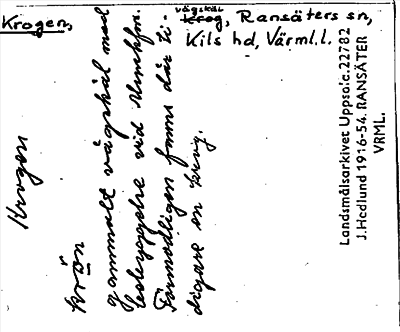 Krogen, vägskäl
krog, Ransäters sn,
Kils hd, Värml. l.
Krogen
krὼn
gammalt vägskäl med
bebyggelse vid
Förmodligen fanns där ti-
digare en krog.
Landsmålsarkivet Uppsala. 22782
J. Hedlund 1916-54. RANSÄTER
VRML.